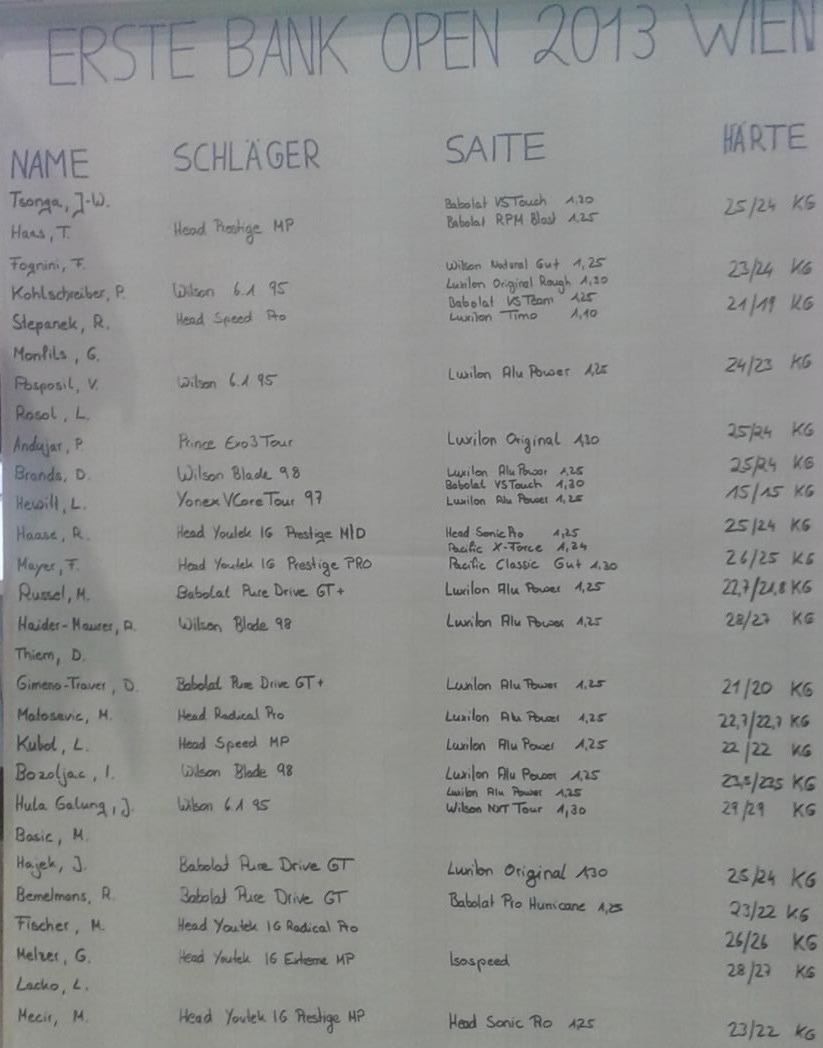 ERSTE BANK OPEN 2013 WIEN
NAME SCHLÄGER SAITE HÄRTE
Tsonga, J-W. Babolat VS Touch 1,30 25/24 KG
Babolat RPM Blast 1,25
Haas, T. Head Prestige MP
Fognini, F. Wilson Natural Gut 1,25 23/24 KG
Luxilon Original Rough 1,30
Kohlschreiber, P. Wilson 6.1 95 Babolat VS Team 1,25 21/19 KG
Stepanek, R. Head Speed Pro Luxilon Timo 1,10
Monfils, G.
Posposil, V. Wilson 6.1 95 Luxilon Alu Power 1,25 24/23 KG
Rosol, L.
Andujar, P. Prince Exo3 Tour Luxilon Original 1,30 25/24 KG
Brands, D. Wilson Blade 98 Luxilon Alu Power 1,25 25/24 KG
Babolat VS Touch 1,30
Hewitt, L. Yonex VCore Tour 97 Luxilon Alu Power 1,25 15/15 KG
Haase, R. Head Youtek IG Prestige MID Head Sonic Pro 1,25 25/24 KG
Pacific X-Force 1,24
Mayer, F. Head Youtek IG Prestige PRO Pacific Classic Gut 1,30 26/25 KG
Russel, M. Babolat Pure Drive GT+ Luxilon Alu Power 1,25 22,7/21,8 KG
Haider-Maurer, A. Wilson Blade 98 Luxilon Alu Power 1,25 28/27 KG
Thiem, D.
Gimeno-Traver, D. Babolat Pure Drive GT+ Luxilon Alu Power 1,25 21/20 KG
Matosevic, M. Head Radical Pro Luxilon Alu Power 1,25 22,7/22,7 KG
Kubot, L. Head Speed MP Luxilon Alu Power 1,25 22/22 KG
Bozoljac, I. Wilson Blade 98 Luxilon Alu Power 1,25 23,5/23,5 KG
Luxilon Alu Power 1,25
Huta Galung, J. Wilson 6.1 95 Wilson NXT Tour 1,30 29/29 KG
Basic, M.
Hajek, J. Babolat Pure Drive GT Luxilon Original 1,30 25/24 KG
Bemelmans, R. Babolat Pure Drive GT Babolat Pro Hurricane 1,25 23/22 KG
Fischer, M. Head Youtek IG Radical Pro 26/26 KG
Melzer, G. Head Youtek IG Extreme MP Isospeed 28/27 KG
Lacko, L.
Mecir, M. Head Youtek IG Prestige MP Head Sonic Pro 1,25 23/22 KG